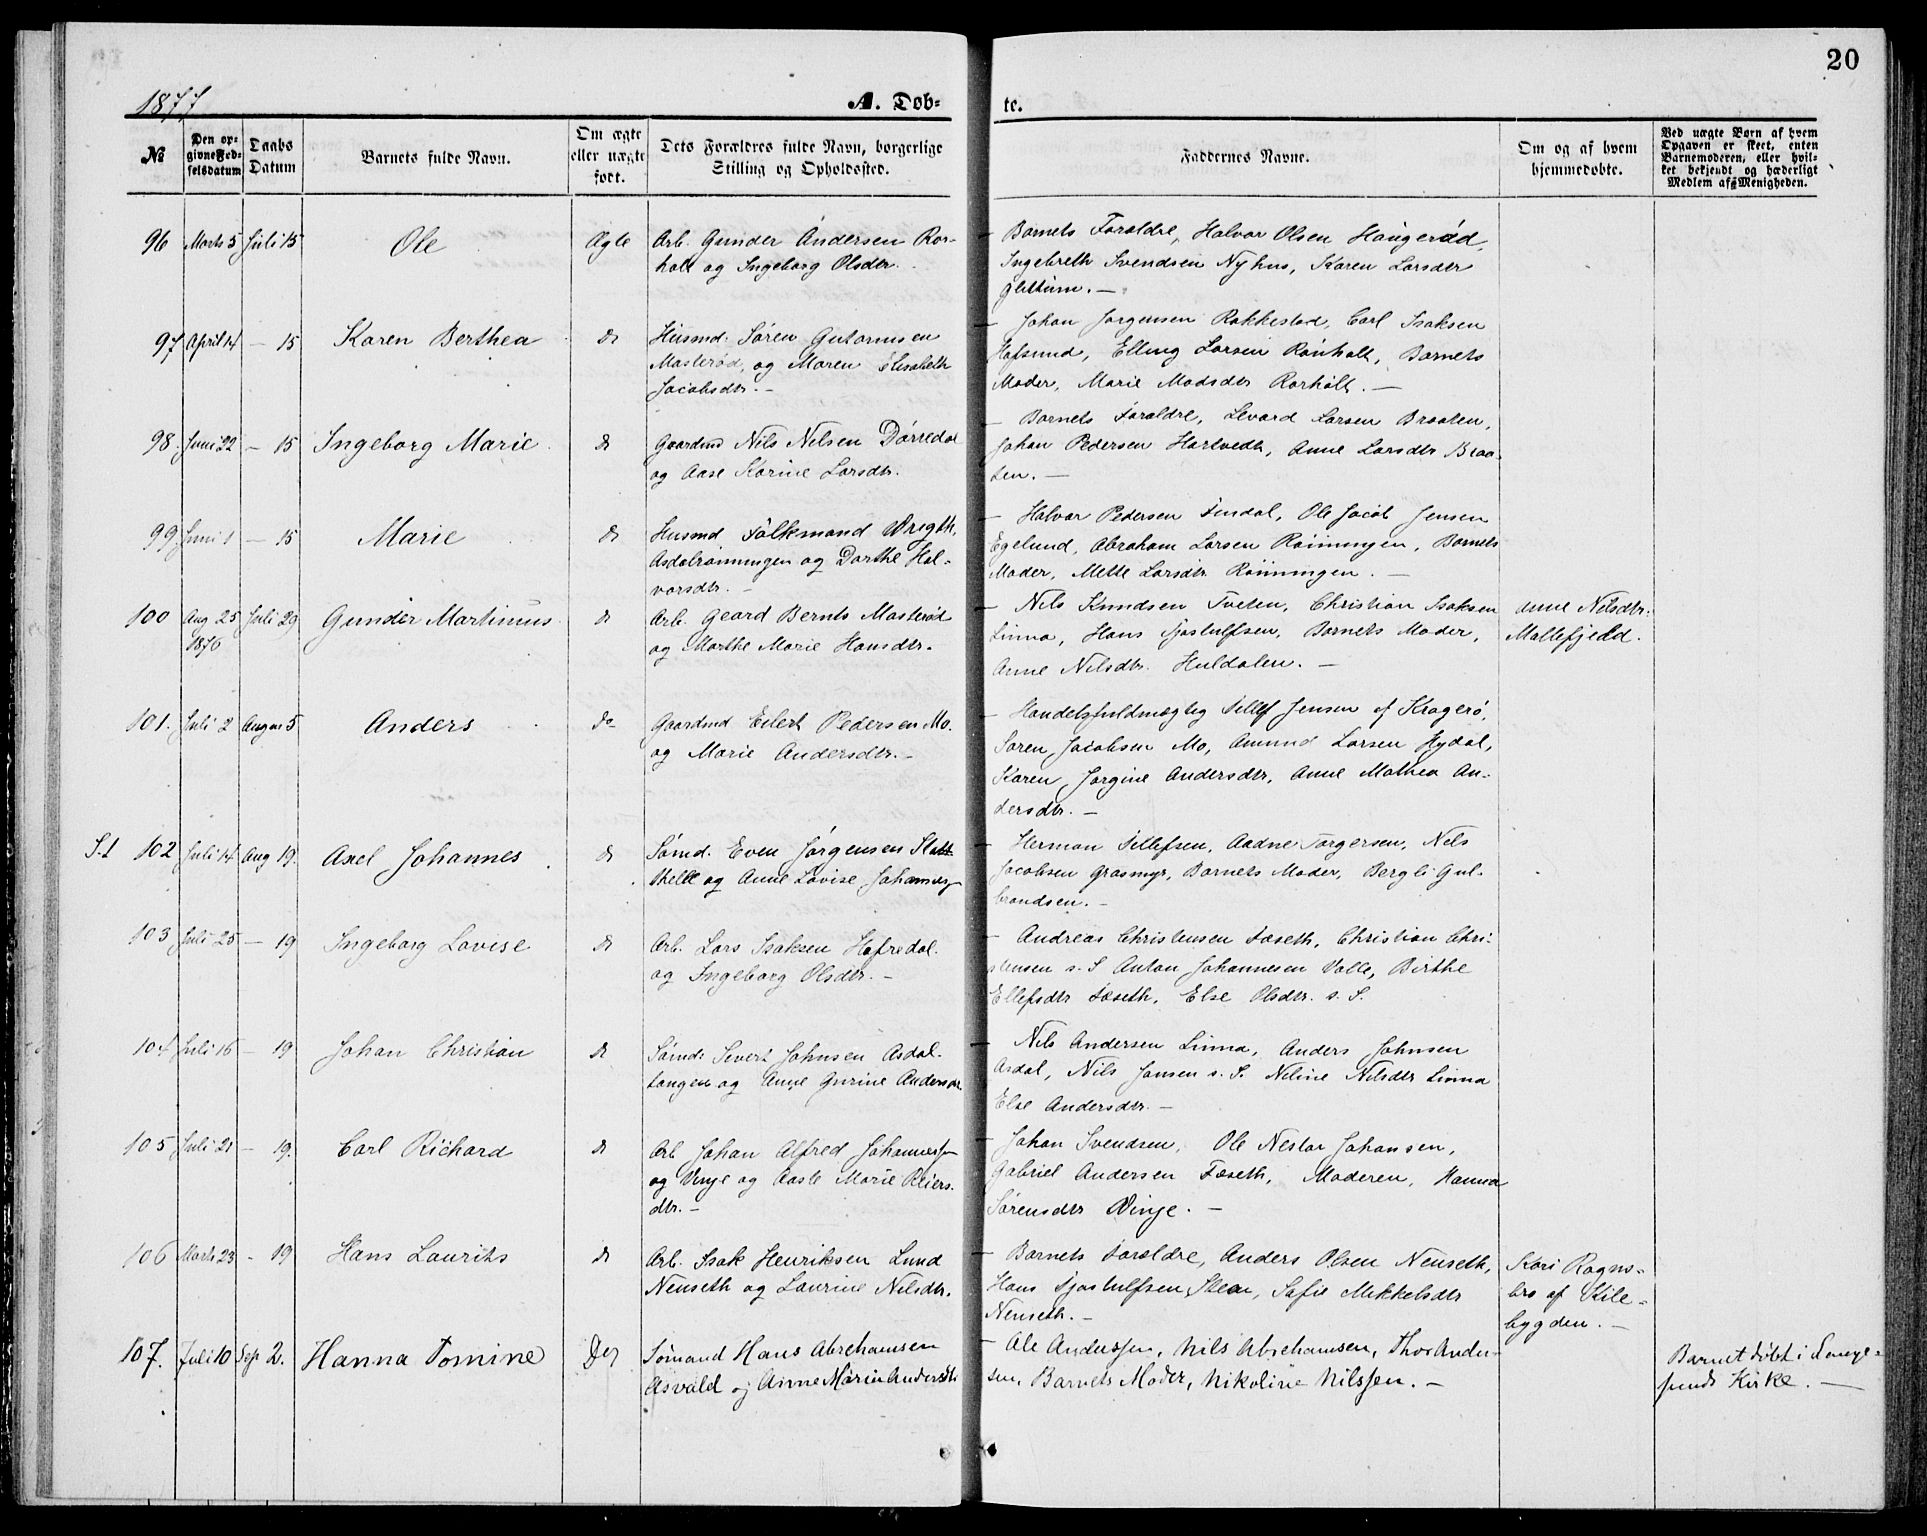 20
1877
A. Døb-
te.
№
Den op-
givne Fød-
selsdatum
Daabs
Datum
Barnets fulde Navn.
Om ægte
eller uægte
født.
Dets Forældres fulde Navn, borgerlige
Stilling og Opholdssted.
Faddernes Navne.
Om og af hvem
hjemmedøbte.
Ved uægte Børn af hvem
Opgaven er skeet, enten
Barnemoderen, eller hvil-
ket bekjendt og hæderligt
Medlem af Menigheden.
96 Marts 5 Juli 15 Ole Ægte Arb. Gunder Andersen Ror-
holt og Ingeborg Olsdtr.
- Barnets Forældre, Halvor Olsen Haugerød,
Ingebreth Svendsen Nyhus, Karen Larsdtr
97 April 14 - 15 Karen Berthea do Husmd. Søren Gutormsen
Masterød, og Maren Elisabeth
Jacobsdtr. -
- Johan Jørgensen Rakkestad, Carl Isaksen
Hafsund, Elling Larsen Rønholt, Barnets
Moder, Marie Madsdtr Rorholt. -
98. Juni 22 - 15 Ingeborg Marie do Gaardmd Nils Nilsen Dørredal
og Aase Karine Larsdtr.
- Barnets Forældre, Levard Larsen Braaten,
Johan Pedersen Hartvedt, Anne Larsdtr Braa-
ten. -
99 Juni 1 - 15 Marie do Husmd Folkmand Wregth,
Asdalrønningen og Dorthe Hal-
vorsdtr. -
- Halvor Pedersen Findal, Ole Jacob Jensen
Egelund, Abraham Larsen Rønningen, Barnets
Moder, Mette Larsdtr. Rønningen. -
100 Aug 25 Juli 29 Gunder Martinus do Arb. Geard Bernts Masterød
1876
og Marthe Marie Hansdtr.
- Nils Knudsen Tveten, Christian Isaksen
Linna, Hans Tjostulfsen, Barnets Moder,
Anne Nilsdtr. Huldalen. -
Anne Nilsdtr.
Mallefjeld.
101. Juli 2 August 5 Anders do Gaardmd Eilert Pedersen Mo.
og Marie Andersdtr. -
- Handelsfuldmægtig Tellef Jensen af Kragerø,
Søren Jacobsen Mo, Amund Larsen Hydal,
Karen Jørgine Andersdtr, Anne Mathea An-
dersdtr. -
S.1 102 Juli 14 Aug 19. Axel Johannes do Sømd. Even Jørgensen Statt
Thelle og Anne Lovise Johannesd
- Herman Tellefsen, Aadne Torgersen, Nels
Jacobsen Grasmyr, Barnets Moder, Bergli Gul-
brandsen. -
103 Juli 25 - 19 Ingeborg Lovise do Arb. Lars Isaksen Hafredal.
og Ingeborg Olsdtr. -
- Andreas Christensen Foseth, Christian Chri-
stensen s. S Anton Johannesen Valle, Birthe
Ellefsdtr Foseth, Else Olsdtr. s. S.
104 Juli 16 - 19 Johan Christian do Sømd: Sivert Johnsen Asdal-
tangen og Anne Gurine Andersdtr
- Nils Andersen Linna, Anders Johnsen
Asdal, Nils Jansen s. S. Neline Nilsdtr Linna
Else Andersdtr. -
105 Juli 21 - 19. Carl Richard do Arb Johan Alfred Johannessen
og Vinje og Aasle Marie Reiers-
dtr. -
- Johan Svendsen, Ole Nestor Johansen,
Gabriel Andersen Foseth, Moderen, Hanna
Sørensdtr Vinje. -
106 Marts 23 - 19 Hans Laurits do Arb. Isak Henriksen Lund
Nenseth og Laurine Nilsdtr.
- Barnets Forældre, Anders Olsen Nenseth,
Hans Tjostulfsen Steen, Sofie Mikkelsdtr
Nenseth. -
Kari Ragns-
bro af Kile-
bygden. -
107. Juli 10 Sep 2. Hanna Tomine Do Sømand Hans Abrahamsen
Asvald og Anne Marie Andersdtr
- Ole Anderssen, Nils Abrahamsen, Thor Ander-
sen, Barnets Moder, Nikoline Nilssen. -
Barnet døbt i Lange-
sunds Kirke. -